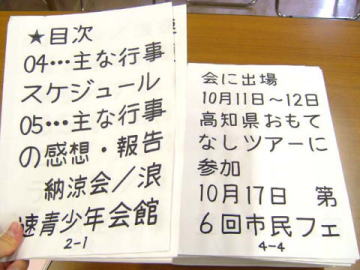 ★目次
04…主な行事
スケジュール
05…主な行事
の感想・報告
納涼会／浪
速青少年会館
2-1
会に出場
10月11日～12日
高知県おもて
なしツアーに
参加
10月17日 第
6回市民フェ
4-4